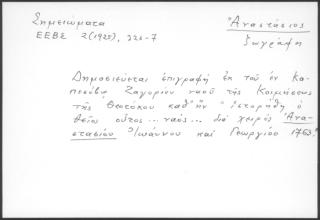 Σημειώματα
ΕΕΒΣ 2(1925), 326-7
Ἀναστάσιος
ζωγράφος
Δημοσιεύεται ἐπιγραφή ἐκ τοῦ ἐν Κα-
πεσόβῳ Ζαγορίου ναοῦ τῆς Κοιμήσεως
τῆς Θεοτόκου καθ' ἥν "ἱστορήθη ὁ
θεῖος οὗτος... ναός... διά χειρός Ἀνα-
στασίου Ἰωάννου καί Γεωργίου 1763."